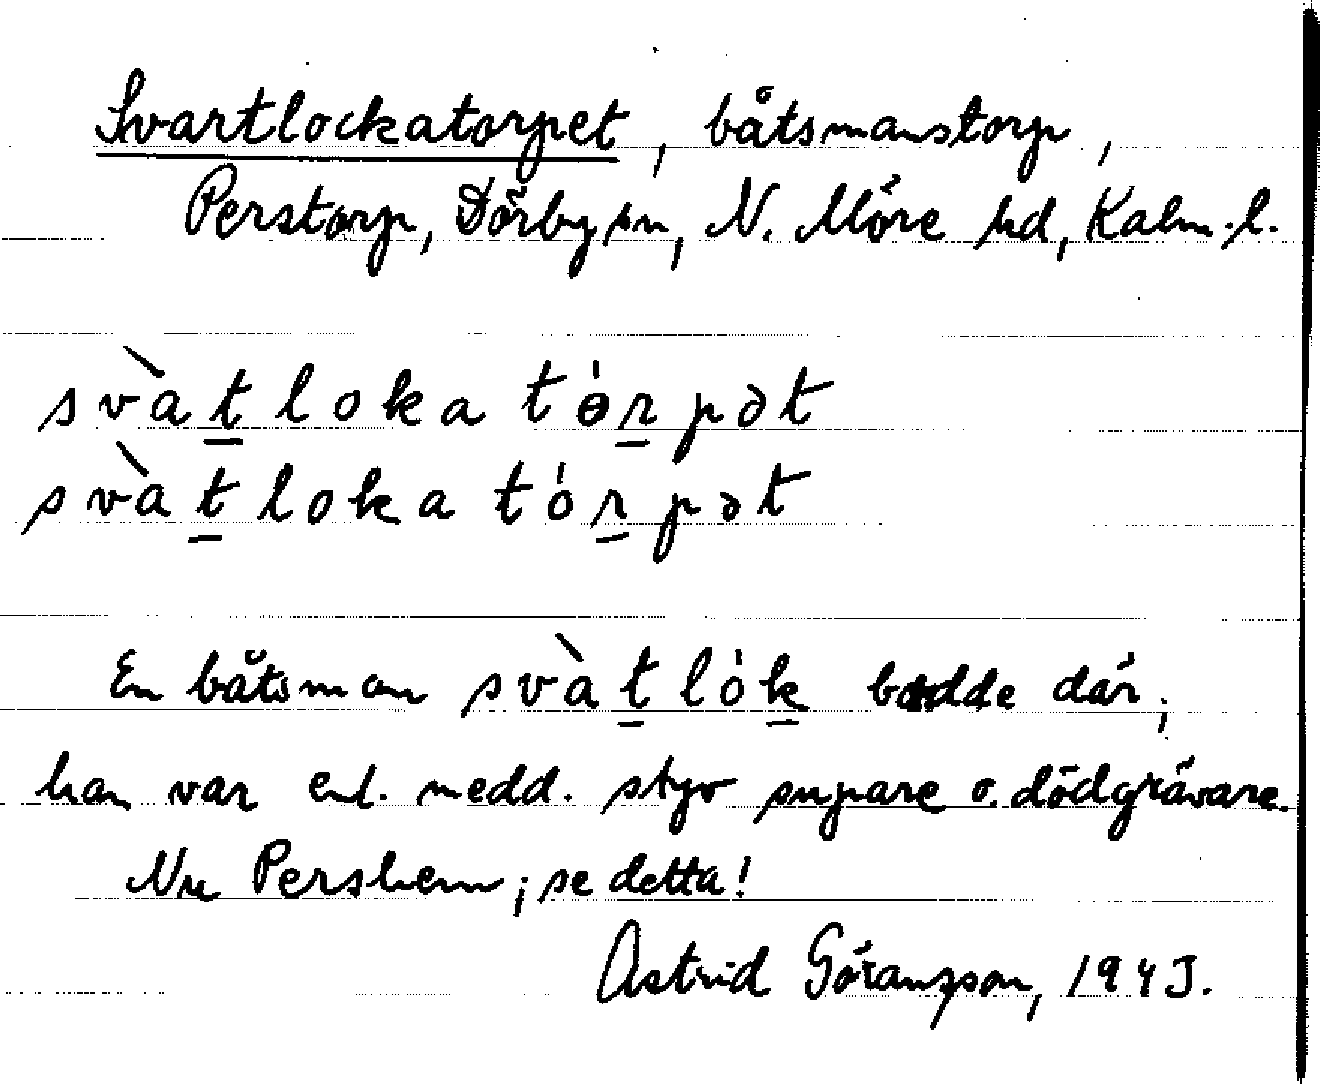 Svartlockatorpet, båtsmanstorp,
Perstorp, Dörby sn, N. Möre hd, Kalm. l.
svàt̲loka tɵ́r̲pət
svàt̲loka tór̲pət
En båtsman svàt̲lók̲ bodde där;
han var enl. medd. styv supare o. dödgrävare.
Nu Pershem; se detta!
Astrid Göransson, 1943.